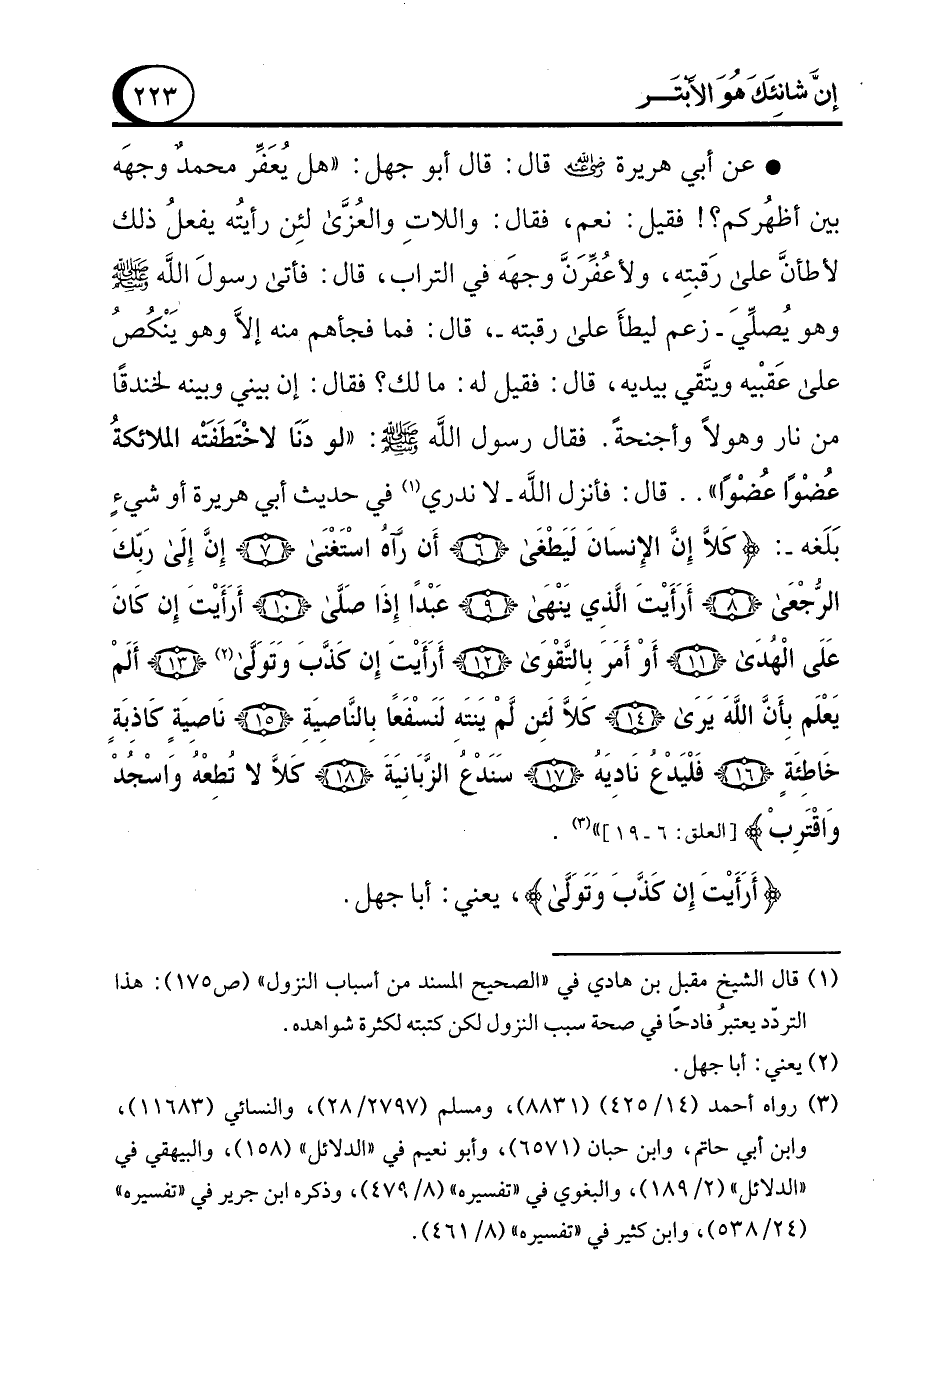 إنَّ شانِئَكَ هُوَ الأَبْتَـــر ٢٢٣
● عن أبي هريرة رضي الله عنه قال: قال أبو جهل: «هل يُعَفِّر محمدٌ وجهَه
بين أظهُركم؟! فقيل: نعم، فقال: واللاتِ والعُزَّىٰ لئن رأيتُه يفعلُ ذلك
لأطأنَّ علىٰ رَقبتِه، ولأعُفِّرَنَّ وجهَه في التراب، قال: فأتىٰ رسولَ اللَّه ﷺ
وهو يُصلِّيَ ـ زعم ليطأَ علىٰ رقبته ـ، قال: فما فجأهم منه إلاَّ وهو يَنْكُصُ
علىٰ عَقبْيه ويتَّقي بيديه، قال: فقيل له: ما لك؟ فقال: إن بيني وبينه لخندقًا
من نار وهولاً وأجنحةً. فقال رسول اللَّه ﷺ: «لو دَنَا لاخْتَطَفَتْه الملائكةُ
عُضْوًا عُضْوًا».. قال: فأنزل اللَّه ـ لا ندري(١) في حديث أبي هريرة أو شيءٍ
بَلَغه ـ: ﴿كَلاَّ إِنَّ الإِنسَانَ لَيَطْغَىٰ ﴿٦﴾ أَن رَّآهُ اسْتَغْنَىٰ ﴿٧﴾ إِنَّ إِلَىٰ رَبِّكَ
الرُّجْعَىٰ ﴿٨﴾ أَرَأَيْتَ الَّذِي يَنْهَىٰ ﴿٩﴾ عَبْدًا إِذَا صَلَّىٰ ﴿١٠﴾ أَرَأَيْتَ إِن كَانَ
عَلَى الْهُدَىٰ ﴿١١﴾ أَوْ أَمَرَ بِالتَّقْوَىٰ ﴿١٢﴾ أَرَأَيْتَ إِن كَذَّبَ وَتَوَلَّىٰ(٢) ﴿١٣﴾ أَلَمْ
يَعْلَم بِأَنَّ اللَّهَ يَرَىٰ ﴿١٤﴾ كَلاَّ لَئِن لَّمْ يَنتَهِ لَنَسْفَعًا بِالنَّاصِيَةِ ﴿١٥﴾ نَاصِيَةٍ كَاذِبَةٍ
خَاطِئَةٍ ﴿١٦﴾ فَلْيَدْعُ نَادِيَهُ ﴿١٧﴾ سَنَدْعُ الزَّبَانِيَةَ ﴿١٨﴾ كَلاَّ لا تُطِعْهُ وَاسْجُدْ
وَاقْتَرِبْ﴾ [العلق: ٦ ـ ١٩]»(٣).
﴿أَرَأَيْتَ إِن كَذَّبَ وَتَوَلَّىٰ﴾، يعني: أبا جهل.
(١) قال الشيخ مقبل بن هادي في «الصحيح المسند من أسباب النزول» (ص١٧٥): هذا
التردّد يعتبرُ قادحًا في صحة سبب النزول لكن كتبته لكثرة شواهده.
(٢) يعني: أبا جهل.
(٣) رواه أحمد (٤٢٥/١٤) (٨٨٣١)، ومسلم (٢٨/٢٧٩٧)، والنسائي (١١٦٨٣)،
وابن أبي حاتم، وابن حبان (٦٥٧١)، وأبو نعيم في «الدلائل» (١٥٨)، والبيهقي في
«الدلائل» (٢/ ١٨٩)، والبغوي في «تفسيره» (٨/ ٤٧٩)، وذكره ابن جرير في «تفسيره»
(٥٣٨/٢٤)، وابن كثير في «تفسيره» (٨/ ٤٦١).